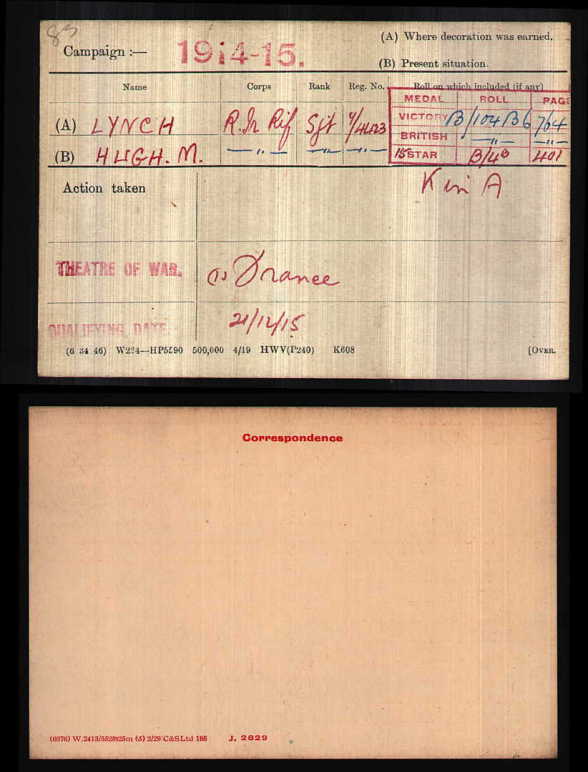 Campaign :— 1914-15.
(A) Where decoration was earned.
(B) Present situation.
Name Corps Rank Reg. No. Roll on which included (if any)
MEDAL ROLL PAGE
(A) LYNCH R. Ir Rif Sjt VICTORY B/104 B6 764
BRITISH —"— —"—
(B) HUGH. M. —"— —"— —"— 15 STAR B/4B 401
Action taken K in A
THEATRE OF WAR. (1) France
QUALIFYING DATE. 21/12/15
(6 34 46) W234—HP5590 500,000 4/19 HWV(P240) K608 [OVER.
Correspondence
J. 2829